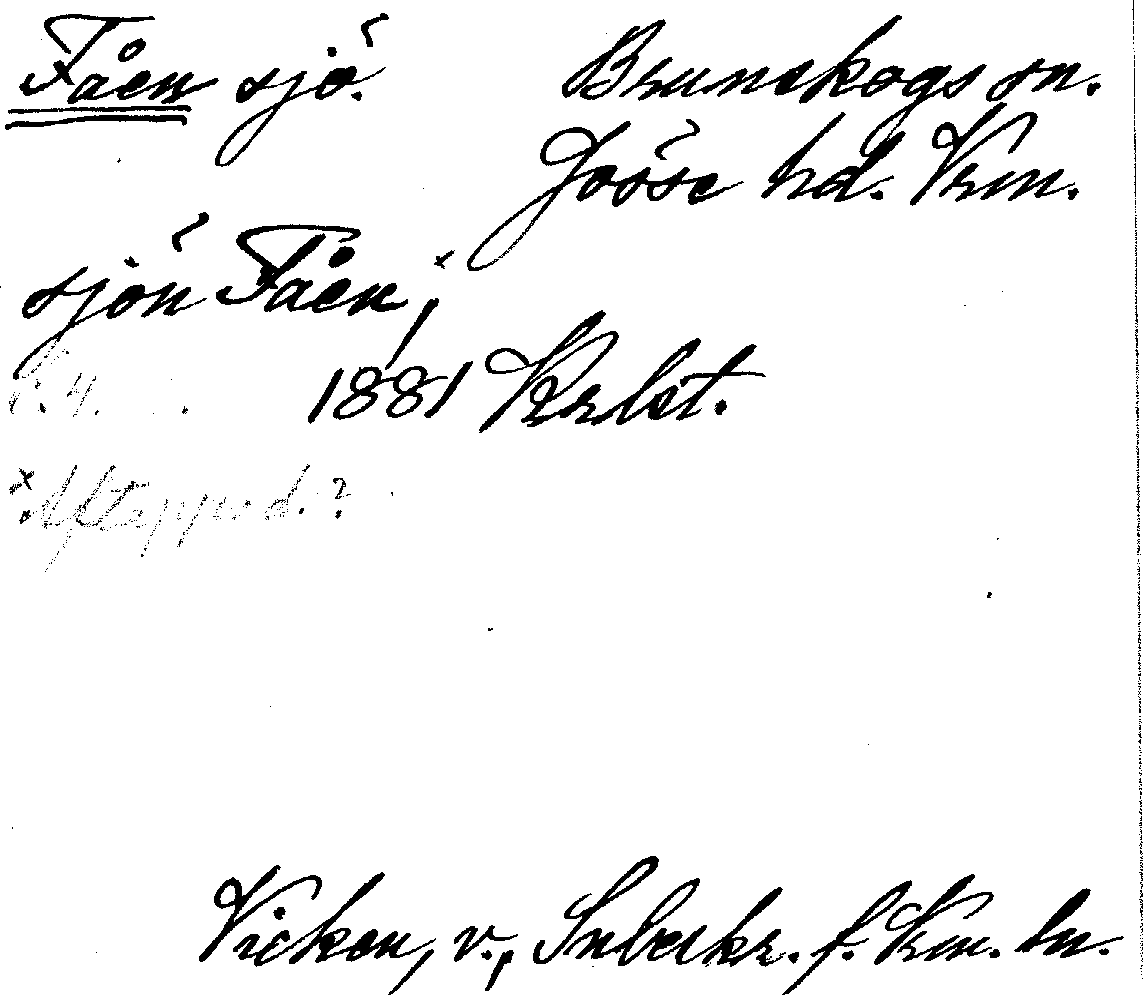 Fåen sjö.
Brunskogs sn.
Jösse hd. Vrm.
sjön Fåen,x
1881 Krbst.
x Aftappad.?
Vicken, v., Snbeskr. f. Vrm. ln.